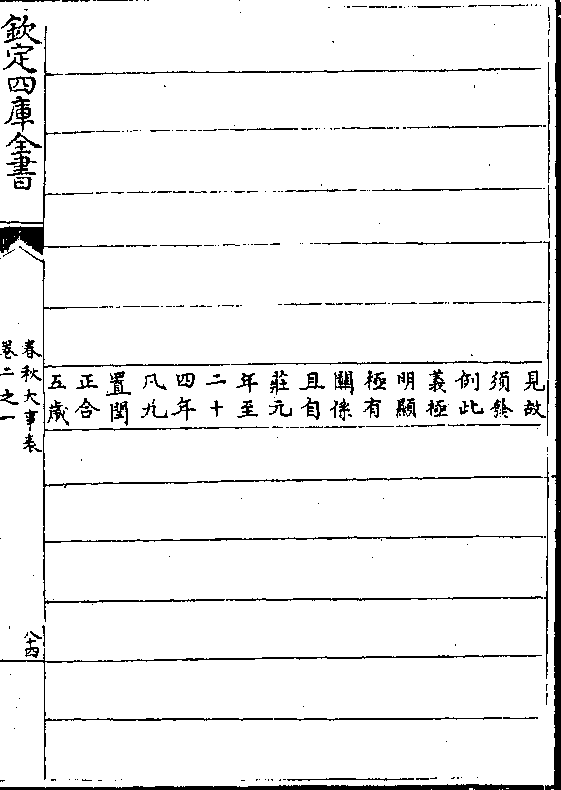 見故
須發
例此
義極
明顯
極有
關係
且自
莊元
年至
二十
四年
凡九
置閏
正合
五歲
欽定四庫全書
春秋大事表
卷二之一
八十四